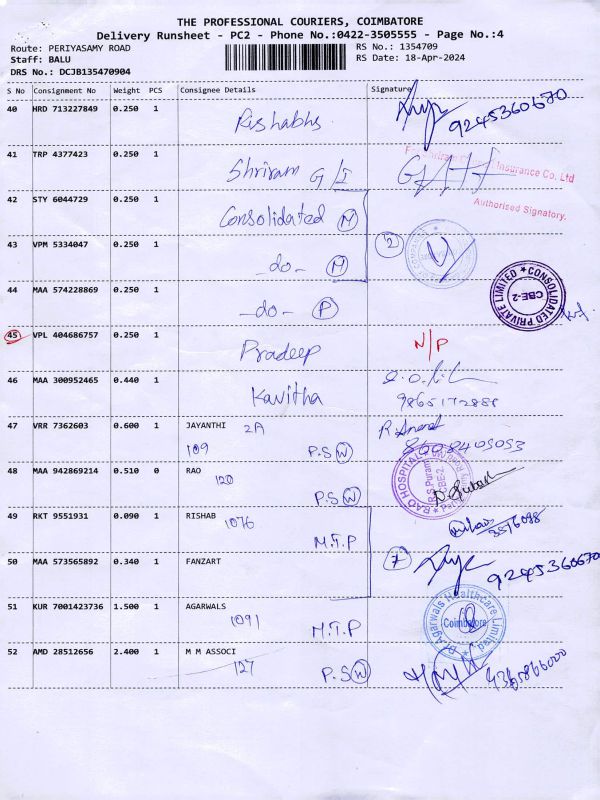 THE PROFESSIONAL COURIERS, COIMBATORE
Delivery Runsheet - PC2 - Phone No.:0422-3505555 - Page No.:4
Route: PERIYASAMY ROAD
RS No.: 1354709
Staff: BALU
RS Date: 18-Apr-2024
DRS No.: DCJB135470904
S No Consignment No Weight PCS Consignee Details Signature
40 HRD 713227849 0.250 1 Rishabhs
9245360670
41 TRP 4377423 0.250 1 Shriram G/I
Insurance Co. Ltd
Authorised Signatory.
42 STY 6044729 0.250 1 Consolidated M
43 VPM 5334047 0.250 1 -do- M 2
44 MAA 574228869 0.250 1 -do- P
CONSOLIDATED PRIVATE LIMITED
CBE-2
45 VPL 404686757 0.250 1 Pradeep N/P
46 MAA 300952465 0.440 1 Kavitha
9865172888
47 VRR 7362603 0.600 1 JAYANTHI 2A
109 P.S W
R. Anand
48 MAA 942869214 0.510 0 RAO
120 P.S W
RAO HOSPITAL
R.S.Puram
CBE-2.
49 RKT 9551931 0.090 1 RISHAB
1076 M.T.P
50 MAA 573565892 0.340 1 FANZART 7
9245360670
51 KUR 7001423736 1.500 1 AGARWALS
1091 M.T.P
Dr.Agarwals Healthcare Limited
Coimbatore
52 AMD 28512656 2.400 1 M M ASSOCI
127 P.S W